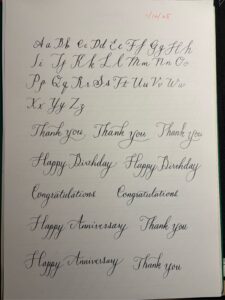 1/10/25
Aa Bb Cc Dd Ee Ff Gg Hh
Ii Jj Kk Ll Mm Nn Oo
Pp Qq Rr Ss Tt Uu Vv Ww
Xx Yy Zz
Thank you, Thank you Thank you
Happy Birthday Happy Birthday
Congratulations Congratulations
Happy Anniversary Thank you
Happy Anniversary Thank you